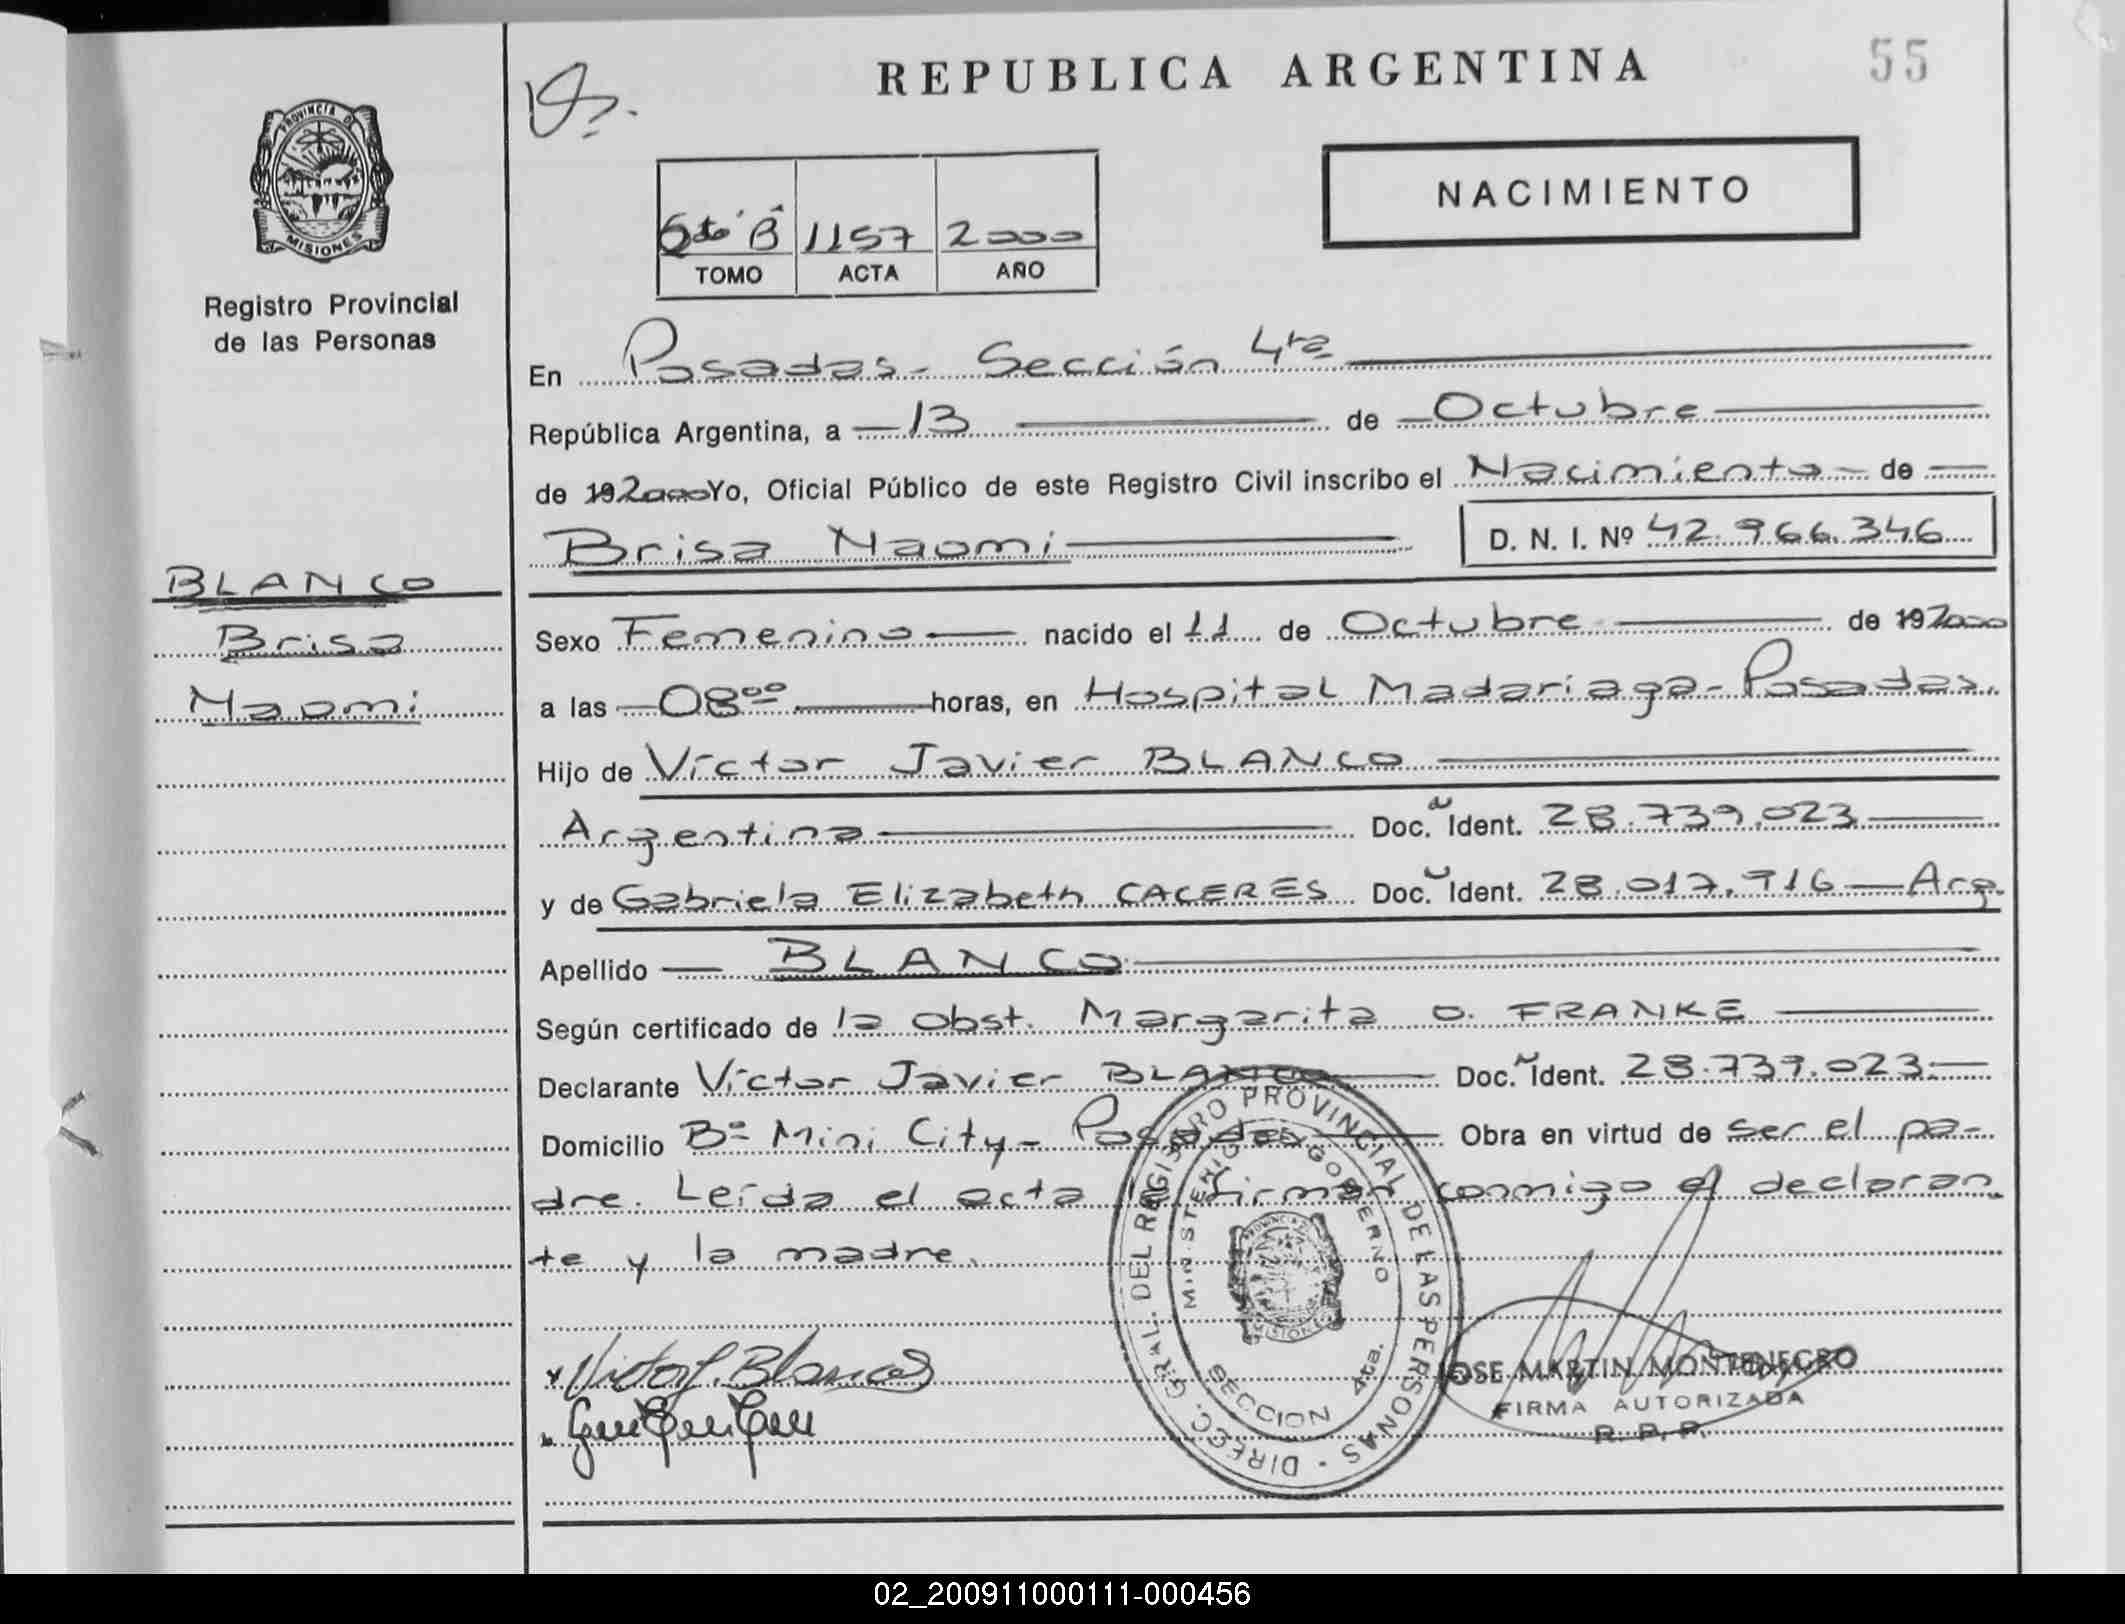 REPUBLICA ARGENTINA
55
PROVINCIA DE MISIONES
Registro Provincial
de las Personas
NACIMIENTO
6to "B" 1157 2000
TOMO ACTA AÑO
En Posadas - Sección 4ta
República Argentina, a 13 de Octubre
de 19 2000 Yo, Oficial Público de este Registro Civil inscribo el Nacimiento de
Brisa Naomi D. N. I. Nº 42.966.346
BLANCO
Brisa
Naomi
Sexo Femenino nacido el 11 de Octubre de 19 2000
a las 08 00 horas, en Hospital Madariaga - Posadas.
Hijo de Víctor Javier BLANCO
Argentina Doc. Ident. 28.739.023
y de Gabriela Elizabeth CACERES Doc. Ident. 28.017.916 - Arg.
Apellido BLANCO
Según certificado de la obst. Margarita O. FRANKE
Declarante Víctor Javier BLANCO Doc. Ident. 28.739.023.-
Domicilio Bº Mini City - Posadas Obra en virtud de ser el pa-
dre. Leída el acta la firman conmigo el declaran
te y la madre.
DIRECC. GRAL. DEL REGISTRO PROVINCIAL DE LAS PERSONAS
MINISTERIO GOBIERNO
PROVINCIA DE MISIONES
SECCION 4ta.
Victor J. Blanco
JOSE MARTIN MONTENEGRO
FIRMA AUTORIZADA
R. P. P.
02_200911000111-000456